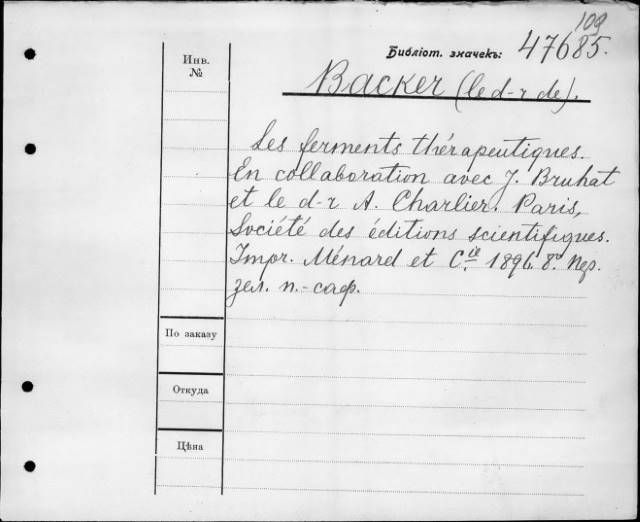 109
Библіот. значекъ: 47685.
Инв.
№
Backer (le d-r de).
Les ferments thérapeutiques.
En collaboration avec J. Bruhat
et le d-r A. Charlier. Paris,
Société des éditions scientifiques.
Impr. Ménard et Cie 1896. 8º. Пер.
зел. п.-саф.
По заказу
Откуда
Цѣна